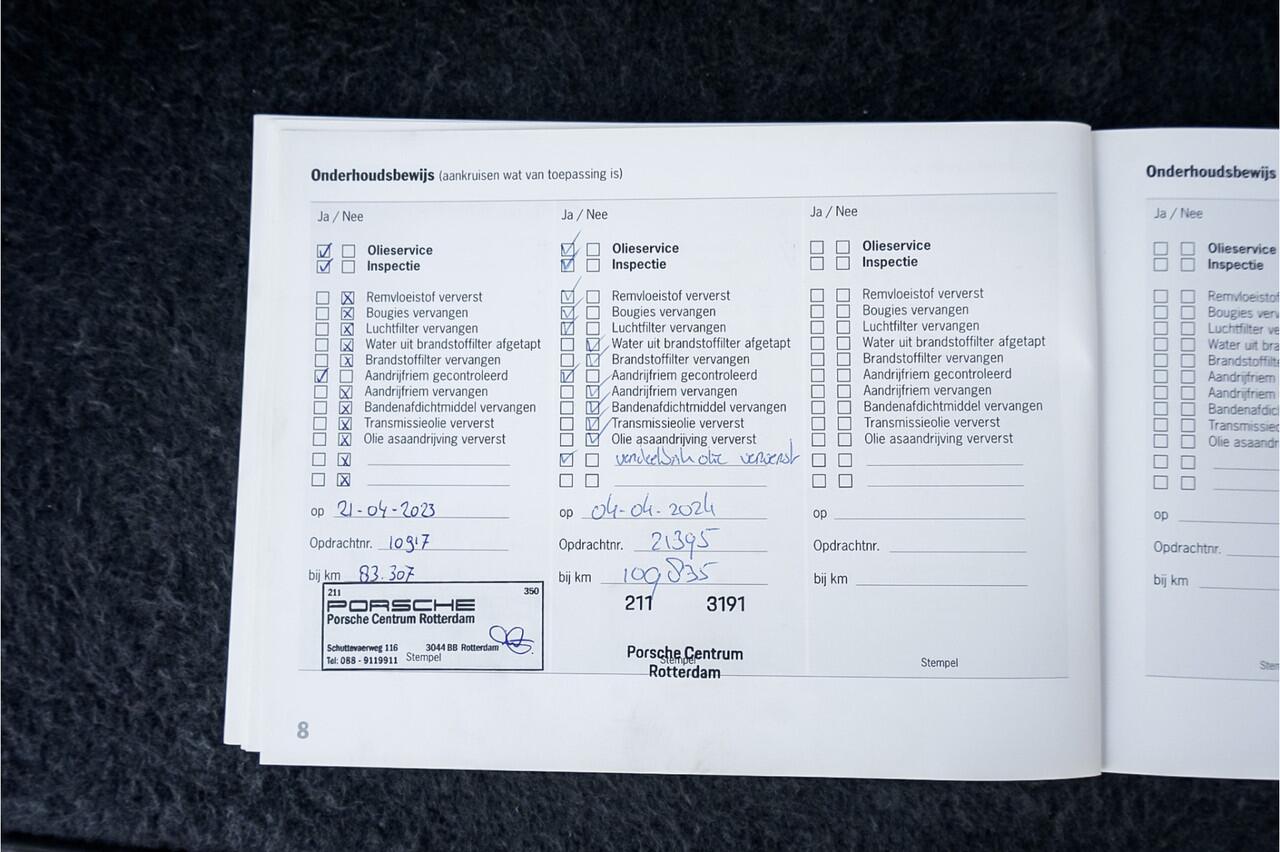 Onderhoudsbewijs (aankruisen wat van toepassing is)
Ja / Nee
Olieservice
Inspectie
Remvloeistof ververst
Bougies vervangen
Luchtfilter vervangen
Water uit brandstoffilter afgetapt
Brandstoffilter vervangen
Aandrijfriem gecontroleerd
Aandrijfriem vervangen
Bandenafdichtmiddel vervangen
Transmissieolie ververst
Olie asaandrijving ververst
op 21-04-2023
Opdrachtnr. 10917
bij km 83.307
211 350
PORSCHE
Porsche Centrum Rotterdam
Schuttevaerweg 116 3044 BB Rotterdam
Tel: 088 - 9119911 Stempel
Ja / Nee
Olieservice
Inspectie
Remvloeistof ververst
Bougies vervangen
Luchtfilter vervangen
Water uit brandstoffilter afgetapt
Brandstoffilter vervangen
Aandrijfriem gecontroleerd
Aandrijfriem vervangen
Bandenafdichtmiddel vervangen
Transmissieolie ververst
Olie asaandrijving ververst
verdeelbak olie ververst
op 04-04-2024
Opdrachtnr. 21395
bij km 109835
211 3191
Porsche Centrum
Stempel
Rotterdam
Ja / Nee
Olieservice
Inspectie
Remvloeistof ververst
Bougies vervangen
Luchtfilter vervangen
Water uit brandstoffilter afgetapt
Brandstoffilter vervangen
Aandrijfriem gecontroleerd
Aandrijfriem vervangen
Bandenafdichtmiddel vervangen
Transmissieolie ververst
Olie asaandrijving ververst
op
Opdrachtnr.
bij km
Stempel
8
Onderhoudsbewijs
Ja / Nee
Olieservice
Inspectie
Remvloeistof
Bougies verv
Luchtfilter ve
Water uit bra
Brandstoffilte
Aandrijfriem
Aandrijfriem
Bandenafdic
Transmissieo
Olie asaandr
op
Opdrachtnr.
bij km
Sten